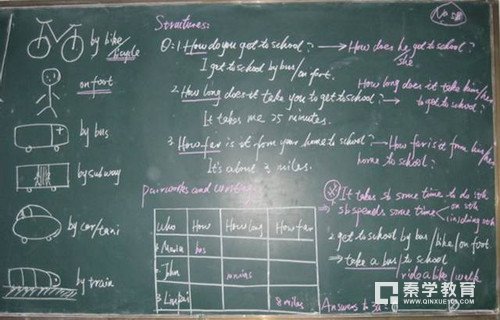 by bike/
bicycle
on foot
by bus
by subway
by car/taxi
by train
Structures:
No. 58
Q: 1. How do you get to school? → How does he get to school?
she
I get to school by bus/on foot.
2. How long does it take you to get to school? → How long does it take him/her
to get to school?
It takes me 25 minutes.
3. How far is it from your home to school? → How far is it from his/her
home to school?
It's about 3 miles.
Pairworks and writing
Who How How long How far
1. Maria bus
2. John 10 mins
3. 8 miles
※ It takes sb some time to do sth
⇒ sb spends some time on sth
(in) doing sth
2 get to school by bus/bike/on foot
⇒ take a bus to school
ride a bike/walk
Answers to
秦学教育
WWW.QINXUE100.COM